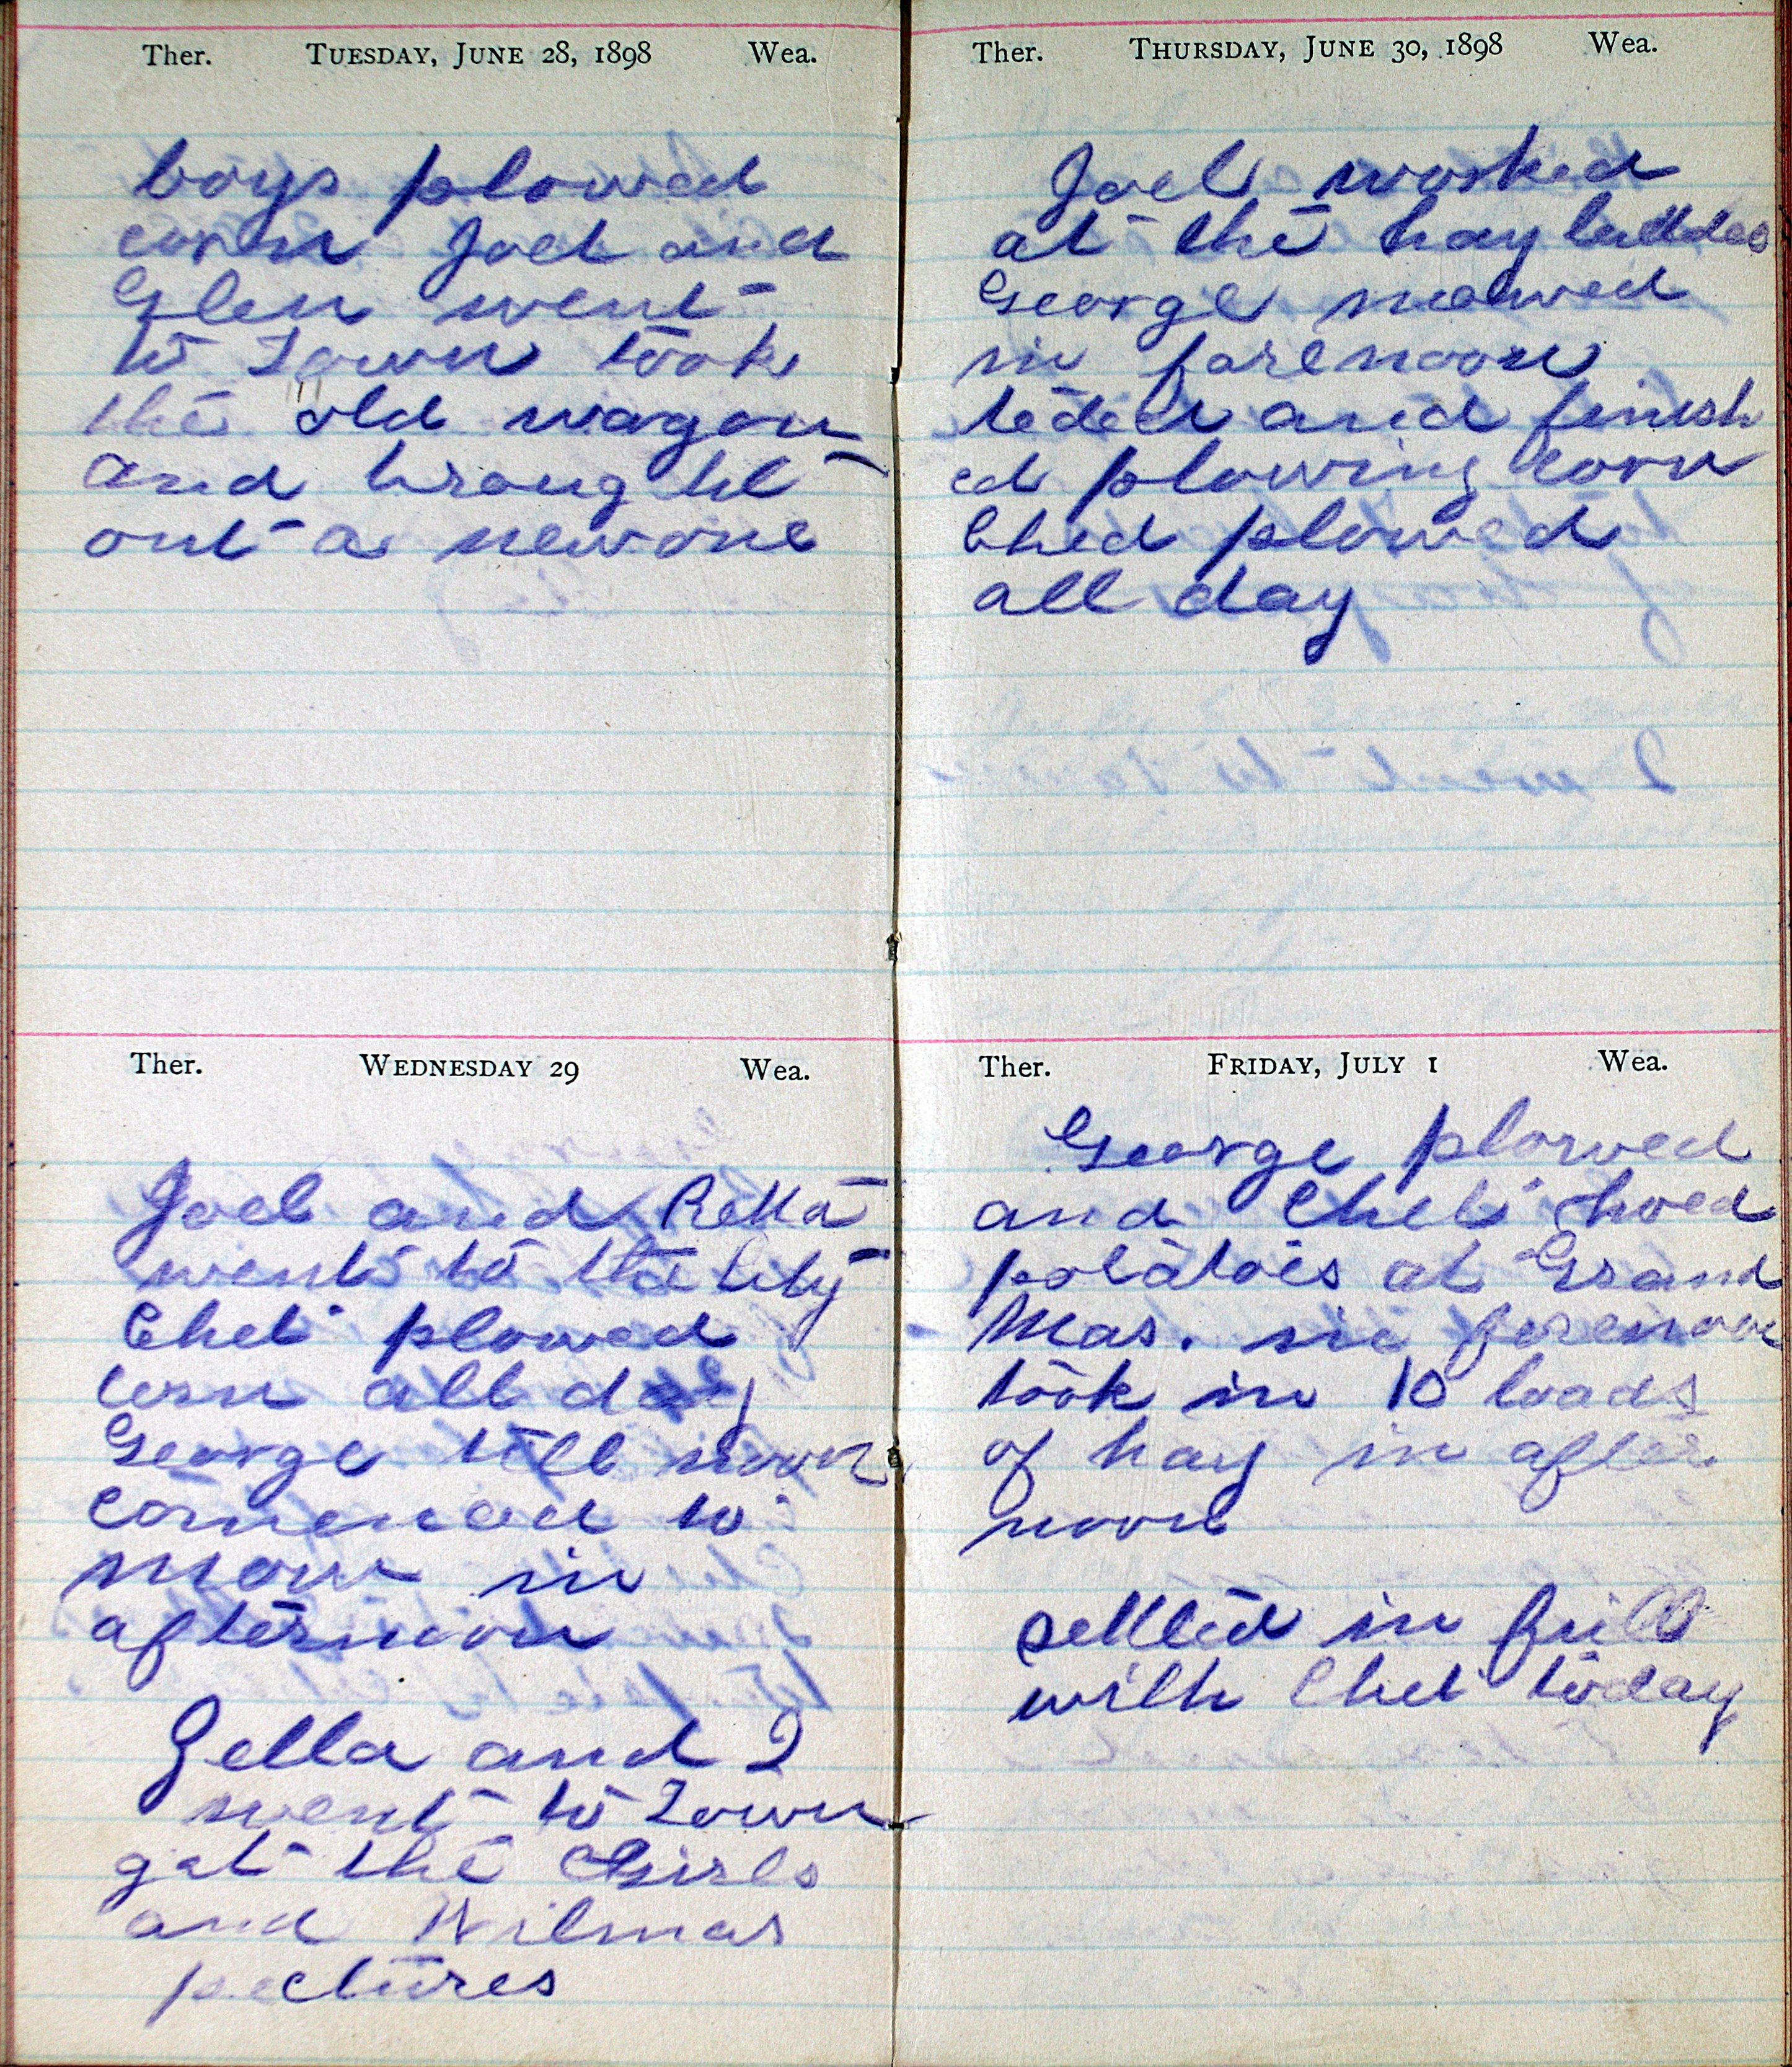 Ther. Tuesday, June 28, 1898 Wea.
boys plowed
corn Joel and
Glen went
to Town took
the old wagon
and brought
out a new one
Ther. Wednesday 29 Wea.
Joel and Retta
went to the City
Chet plowed
corn all day
George till noon
comenced to
mow in
afternoon
Zella and I
went to Town
got the Girls
and Wilmas
pectures
Ther. Thursday, June 30, 1898 Wea.
Joel worked
at the hay
George mowed
in forenoon
teded and finish
ed plowing corn
Ched plowed
all day
Ther. Friday, July 1 Wea.
George plowed
and Chet hoed
potatoes at Grand
Mas. in forenoon
took in 10 loads
of hay in after
noon
settled in full
with Chet today